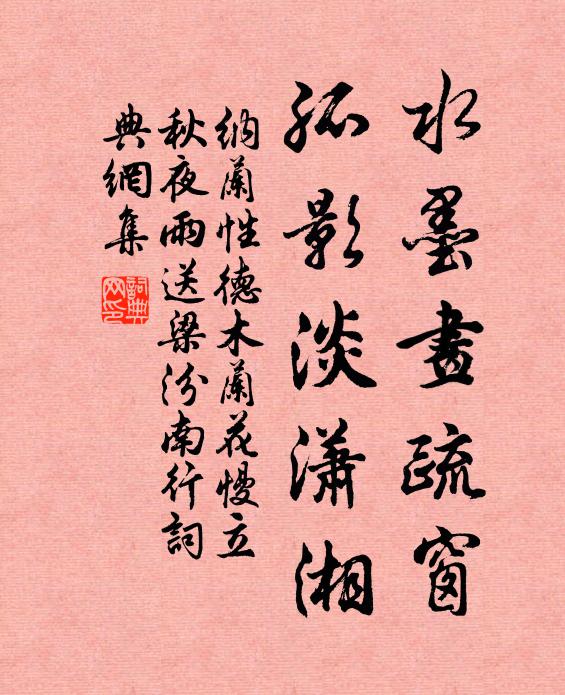 水墨畫疏窗
孤影淡瀟湘
納蘭性德木蘭花慢立
秋夜雨送梁汾南行詞
典網集
詞典
网印